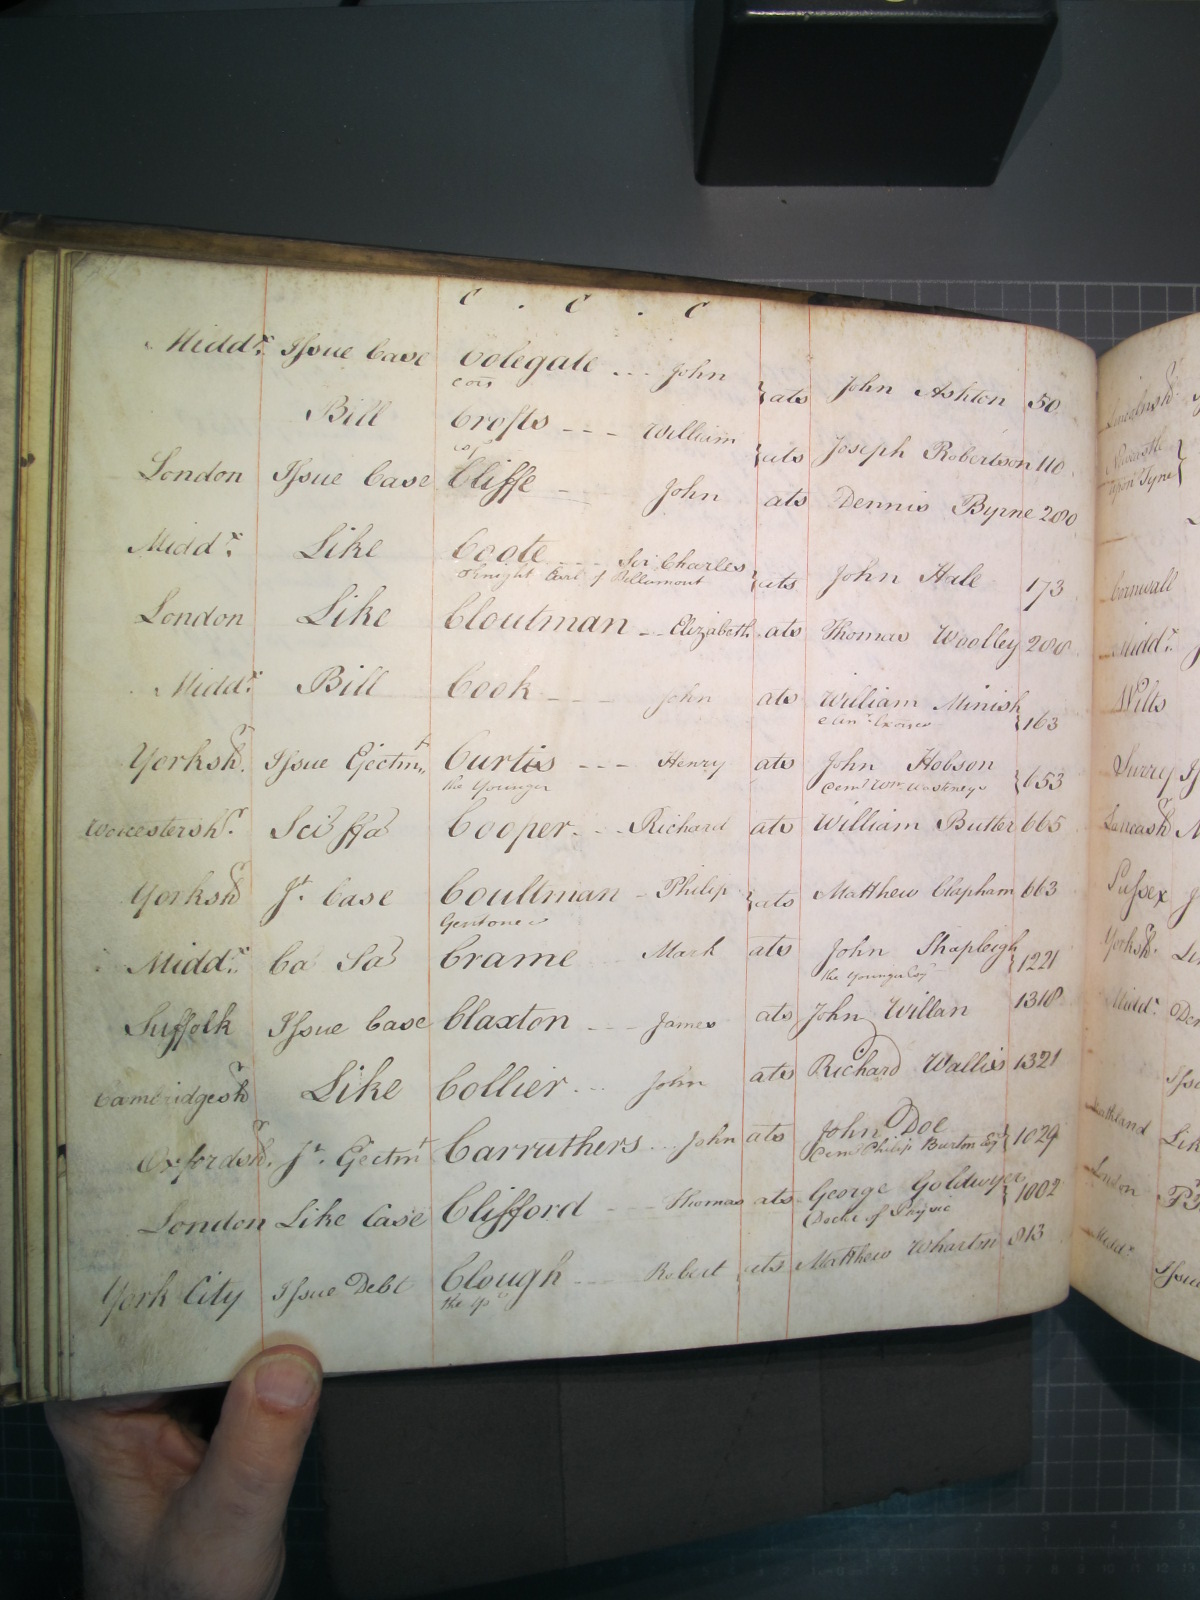 C . C . C
Middx. Issue Case Colegate --- John } ats John Ashton 50
Bill Crofts --- William } ats Joseph Robertson 110
London Issue Case Cliffe -- John ats Dennis Byrne 280
Middx. Like Coote --- Sir Charles } ats John Hale 173
Knight Earl of Bellamont
London Like Cloutman -- Elizabeth ats Thomas Woolley 288
Middx. Bill Cook --- John ats William Minish } 163
Yorksh. Issue Ejectmt. Curtis --- Henry ats John Hobson } 653
the Younger
Worcestershr. Sci ffa Cooper --- Richard ats William Butter 665
Yorksh Jt. Case Coullman - Philip } ats Matthew Clapham 663
Gent one &
Middx. Ca Sa Crame Mark ats John Shapleigh } 1221
the Younger Esq
Suffolk Issue Case Claxton --- James ats John Willan 1318
Cambridgesh Like Collier --- John ats Richard Wallis 1321
Oxfordsh. Jt. Ejectmt Carruthers --- John ats John Doe } 1029
Dem Philip Burton Esq
London Like Case Clifford --- Thomas ats George Goldwyer } 1002
Doctr. of Physic
York City Issue Debt Clough --- Robert ats Matthew Wharton 913
the yr
Lincolnsh
Newcastle
upon Tyne }
Cornwall
Middx.
Wilts
Surrey
Lancash
Sussex
Yorksh.
Middx.
London
Middx.